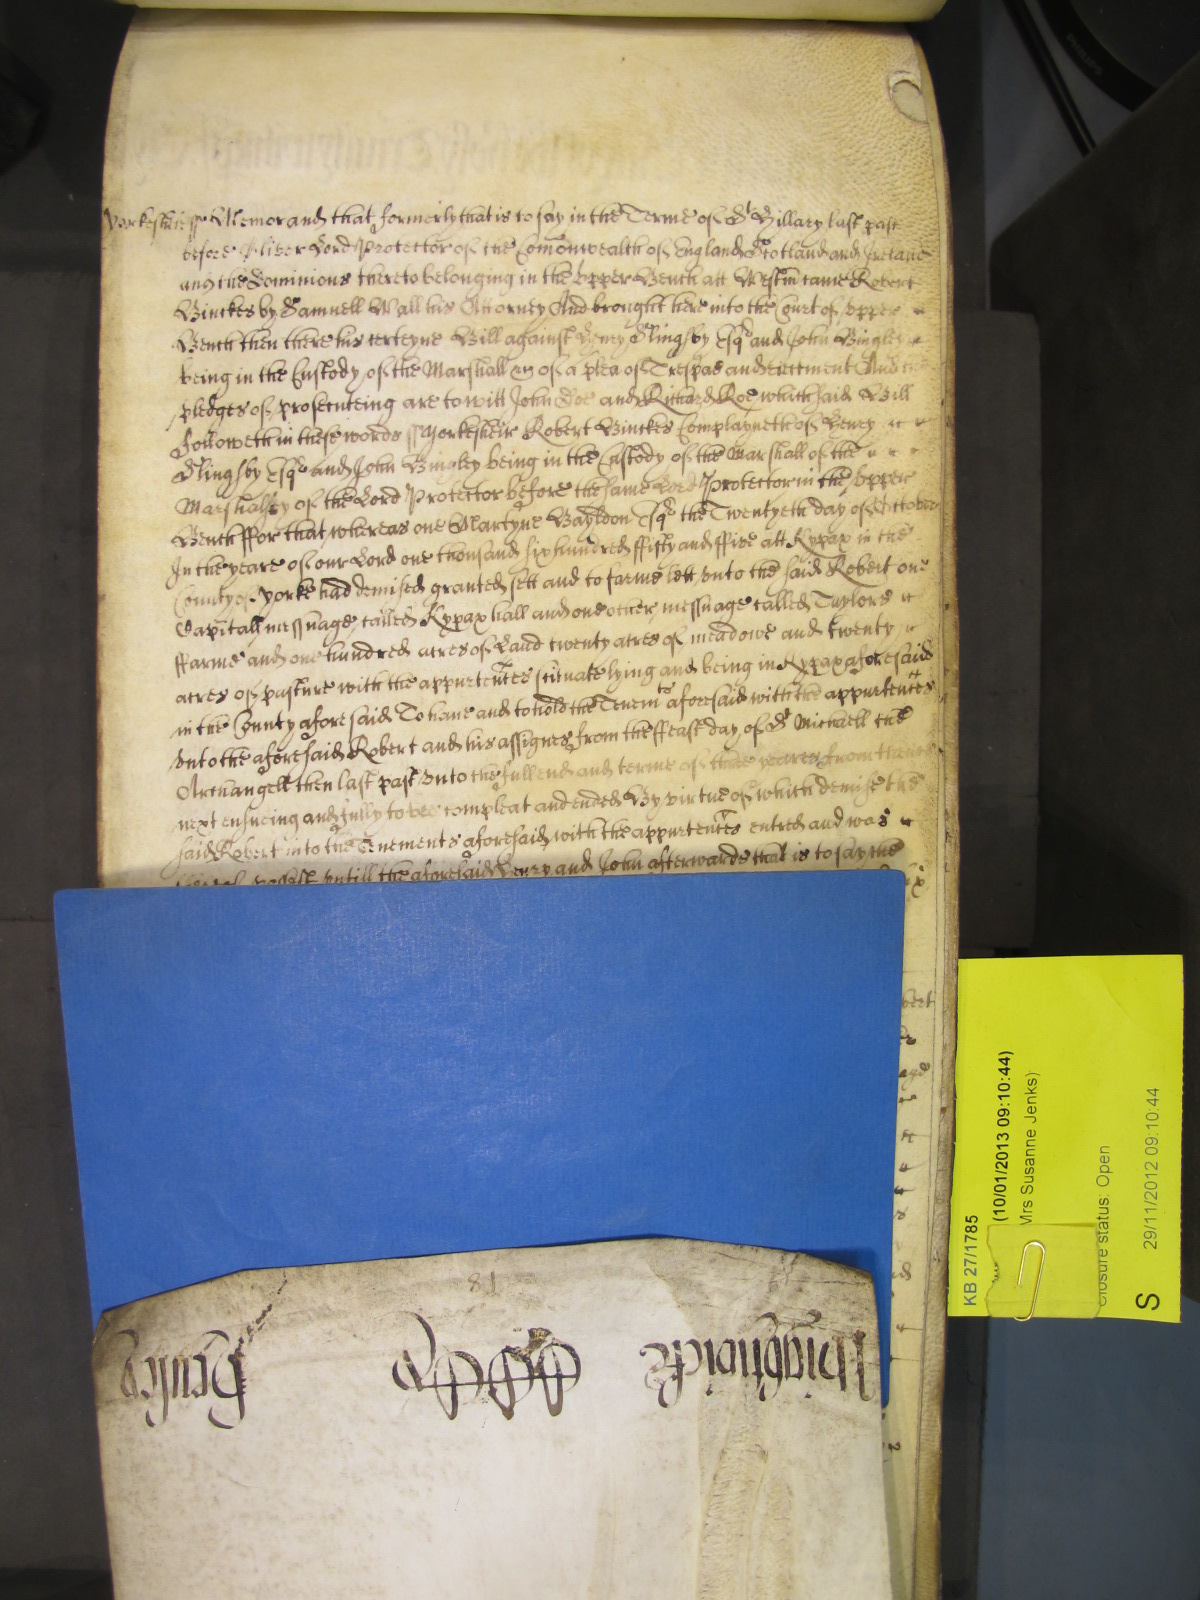 Yorkesheir ss Memorand that formerly that is to say in the Terme of St Hillary last past
before Oliver Lord Protector of the Comonwealth of England Scotland and Ireland
and the Dominions thereto belonging in the Upper Bench att Westm came Robert
Binckes by Samuell Wall his Attorney And brought here into the Court of Upper
Bench then there his certeyne Bill against Henry Slingsby Esqr and John Bingley
being in the Custody of the Marshall &c of a plea of Trespas and eiectment And the
pledges of prosecuteing are to witt John Doe and Richard Roe which said Bill
followeth in these words ss Yorkesheir Robert Binckes Complayneth of Henry
Slingsby Esqr and John Bingley being in the Custody of the Marshall of the
Marshalsey of the Lord Protector before the same Lord Protector in the Upper
Bench ffor that whereas one Martyne Bayldon Esqr the Twentyeth day of October
In the yeare of our Lord one thousand six hundred ffifty and ffive att Kypax in the
County of Yorke had demised granted sett and to farme lett unto the said Robert one
Capitall messuage called Kypax hall and one other messuage called Taylors
ffarme and one hundred acres of Land twenty acres of meadowe and twenty
acres of pasture with the appurtences scituate lying and being in Kypax aforesaid
in the County aforesaid To have and to hold the Tenemts aforesaid with the appurtentes
unto the aforesaid Robert and his assignes from the ffeast day of St Michaell the
Archangell then last past unto the full end and terme of three yeares from thence
next ensueing and fully to bee compleat and ended By virtue of which demise the
said Robert into the Tenements aforesaid with the appurtences entred and was
untill the aforesaid Henry and John afterwards that is to say the
81
Wightwicke
Henley
KB 27/1785
(10/01/2013 09:10:44)
Mrs Susanne Jenks)
Closure status: Open
S
29/11/2012 09:10:44
PHILIPS